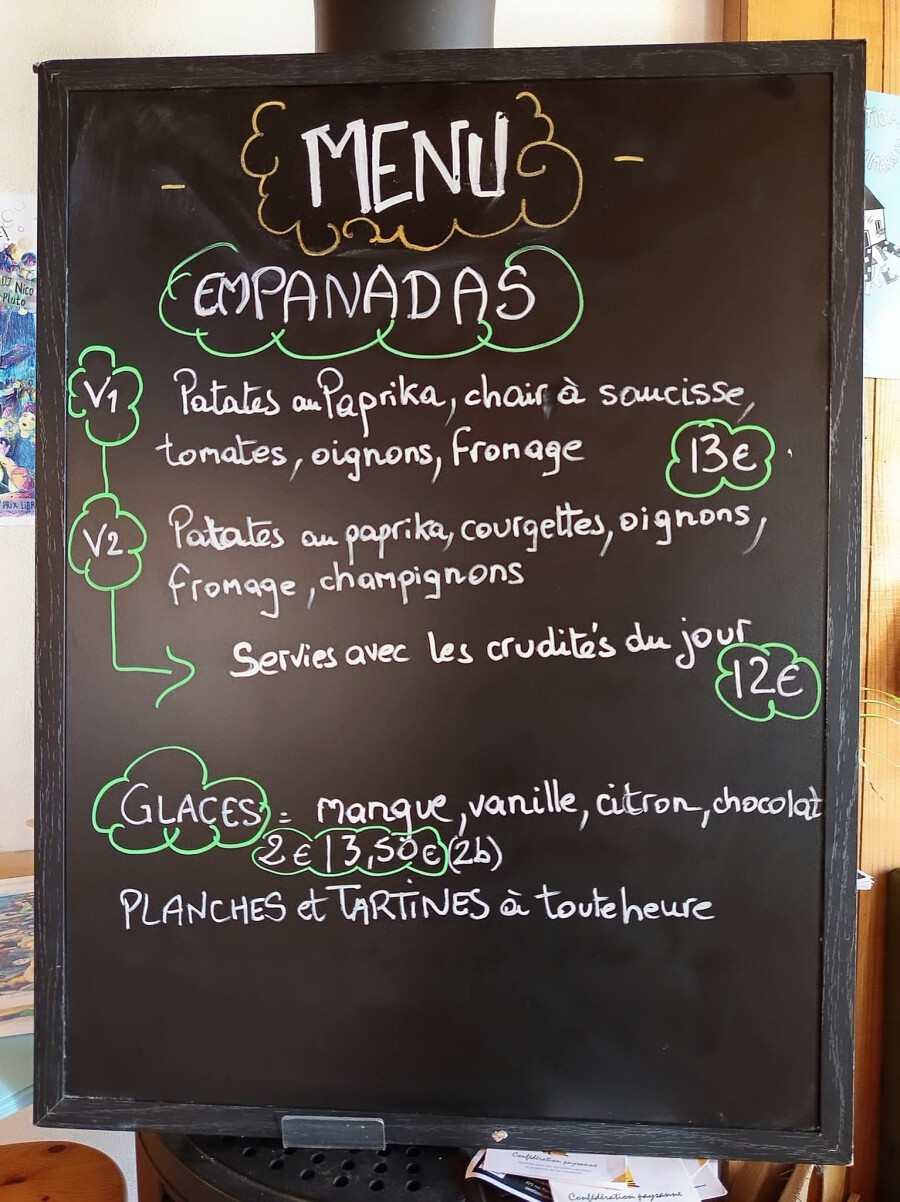 - MENU -
EMPANADAS
V1 Patates au Paprika, chair à saucisse,
tomates, oignons, fronage 13€
V2 Patates au paprika, courgettes, oignons,
fromage, champignons
Servies avec les crudités du jour
12€
GLACES = mangue, vanille, citron, chocolat
2€ | 3,50€ (2b)
PLANCHES et TARTINES à toute heure
DJ Nico
Pluto
PRIX LIBR
Confédération paysanne
Confédération paysanne